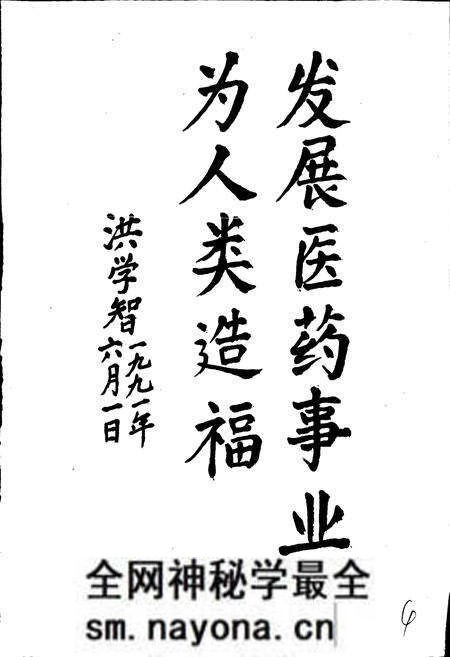 发展医药事业
为人类造福
洪学智
一九九一年
六月一日
全网神秘学最全
sm.nayona.cn
6